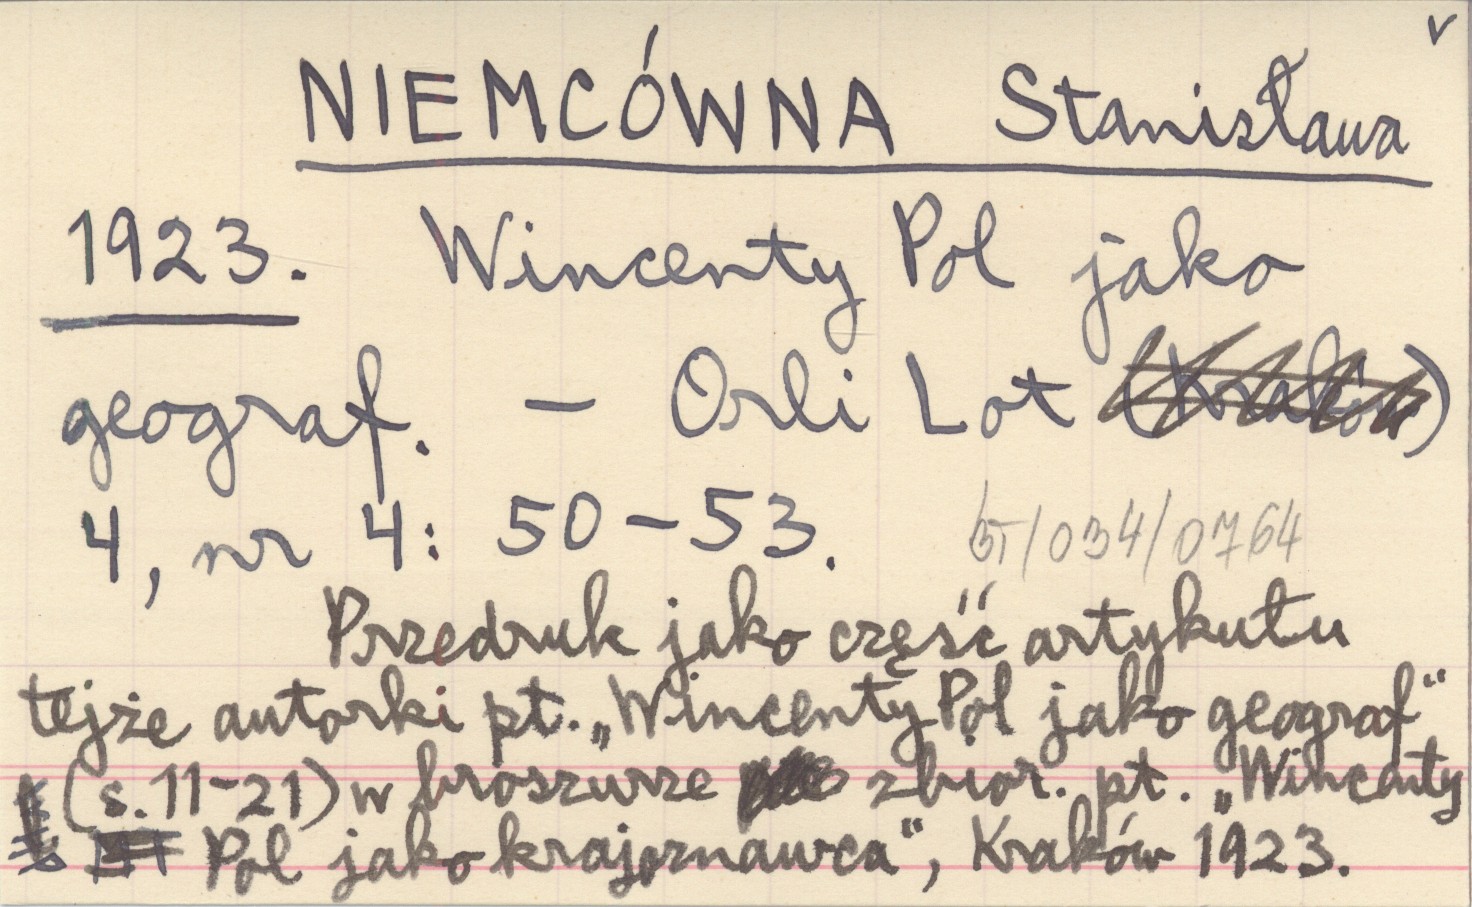 v
NIEMCÓWNA Stanisława
1923. Wincenty Pol jako
geograf. – Orli Lot (Kraków)
4, nr 4: 50–53. /034/0764
Przedruk jako część artykułu
tejże autorki pt. „Wincenty Pol jako geograf“
(s. 11–21) w broszurze zbior. pt. „Wincenty
Pol jako krajoznawca“, Kraków 1923.